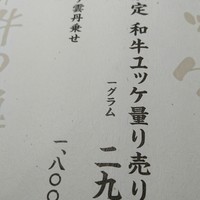 定 和牛ユッケ量り売り
一グラム 二九
雲丹乗せ
一、八〇〇